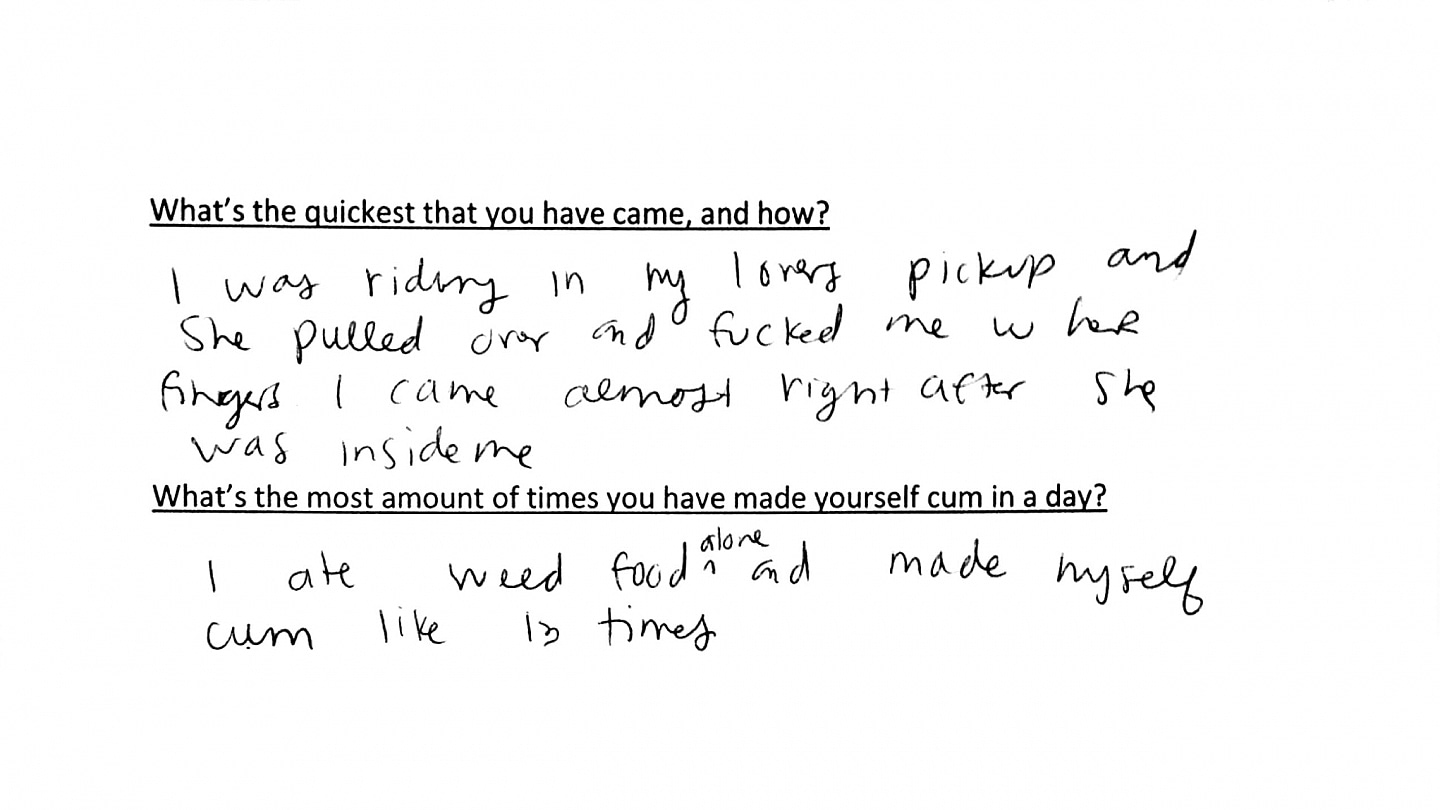 What's the quickest that you have came, and how?
I was riding in my lovers pickup and
she pulled over and fucked me w her
fingers I came almost right after she
was inside me
What's the most amount of times you have made yourself cum in a day?
I ate weed food alone and made myself
cum like 13 times